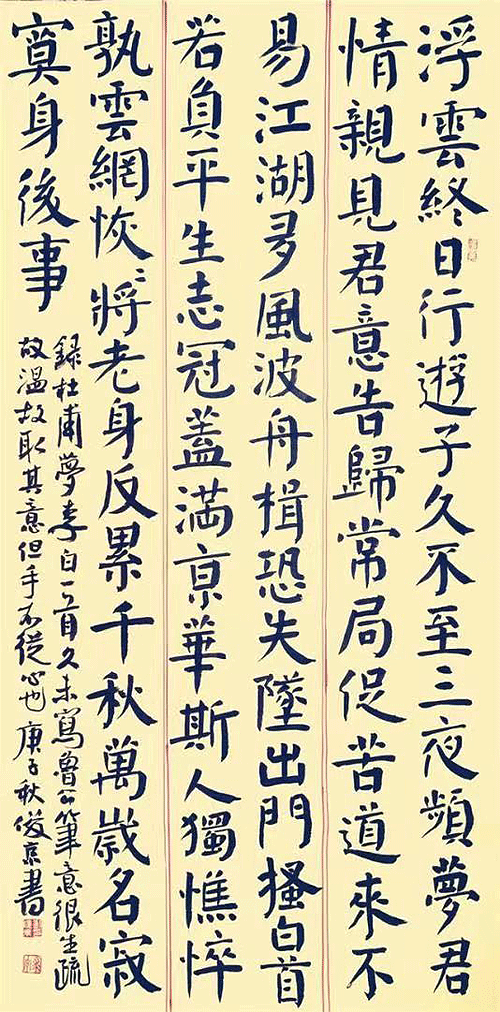 浮雲終日行遊子久不至三夜頻夢君
情親見君意告歸常局促苦道來不
易江湖多風波舟楫恐失墜出門搔白首
若負平生志冠蓋滿京華斯人獨憔悴
孰雲網恢〻將老身反累千秋萬歲名寂
寞身後事
錄杜甫夢李白一首久未寫魯公筆意很生疏
故溫故取其意但手不從心也庚子秋俊京書